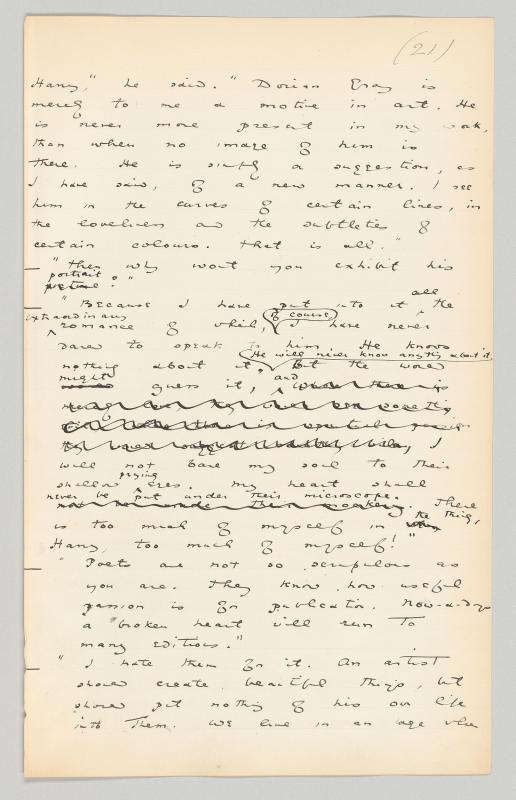 (21)
Harry," he said. "Dorian Gray is
merely to me a motive in art. He
is never more present in my work,
than when no image of him is
there. He is simply a suggestion, as
I have said, of a new manner. I see
him in the curves of certain lines, in
the loveliness and the subtleties of
certain colours. That is all."
"Then why wont you exhibit his
portrait
picture?"
all
"Because I have put into it the
extraordinary of course,
romance of which, I have never
dared to speak to him. He knows
He will never know anything about it.
nothing about it. But the world
might and
would guess it, where there is
I
will not bare my soul to their
prying
shallow eyes. My heart shall
never be put under their microscope.
There
the thing,
is too much of myself in
Harry, too much of myself!"
"Poets are not so scrupulous as
you are. They know how useful
passion is for publication. Now-a-days
a broken heart will run to
many editions."
"I hate them for it. An artist
should create beautiful things, but
should put nothing of his own life
into them. We live in an age when